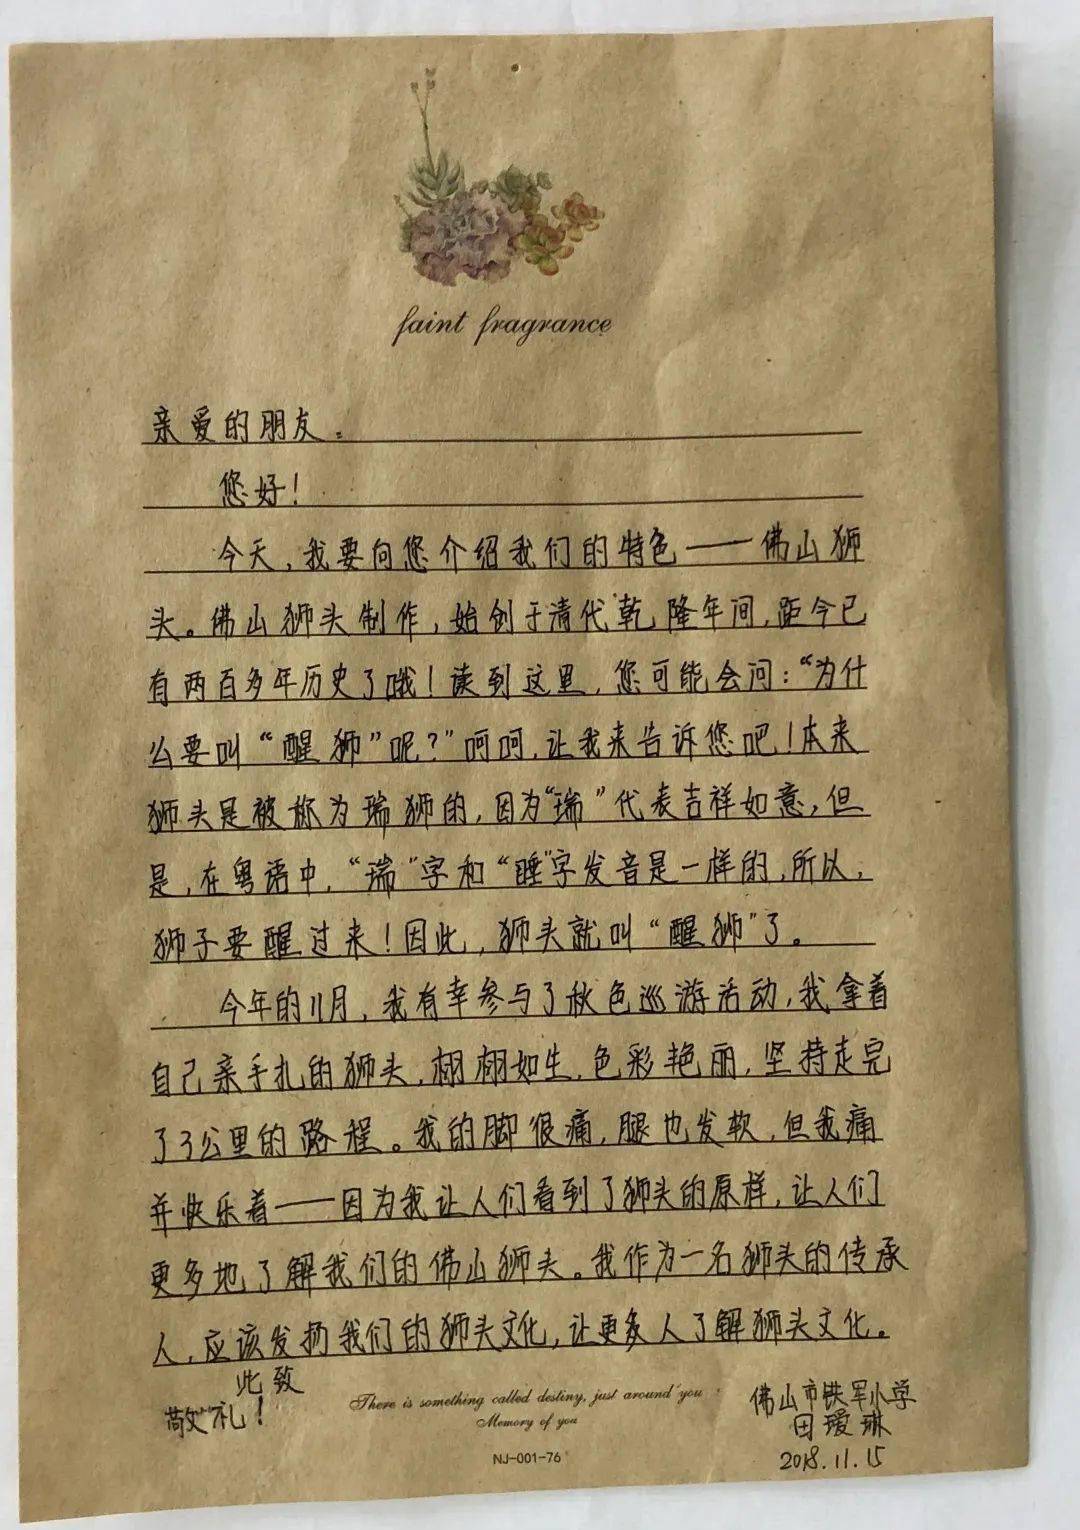 faint fragrance
亲爱的朋友：
您好！
今天，我要向您介绍我们的特色——佛山狮
头。佛山狮头制作，始创于清代乾隆年间，距今已
有两百多年历史了哦！读到这里，您可能会问：“为什
么要叫“醒狮”呢？”呵呵，让我来告诉您吧！本来
狮头是被称为瑞狮的，因为“瑞”代表吉祥如意，但
是，在粤语中，“瑞”字和“睡”字发音是一样的，所以，
狮子要醒过来！因此，狮头就叫“醒狮”了。
今年的11月，我有幸参与了秋色巡游活动，我拿着
自己亲手扎的狮头，栩栩如生，色彩艳丽，坚持走完
了3公里的路程。我的脚很痛，腿也发软，但我痛
并快乐着——因为我让人们看到了狮头的原样，让人们
更多地了解我们的佛山狮头。我作为一名狮头的传承
人，应该发扬我们的狮头文化，让更多人了解狮头文化。
此致
敬礼！
There is something called destiny, just around you
Memory of you
NJ-001-76
佛山市铁军小学
田瑷琳
2018.11.15